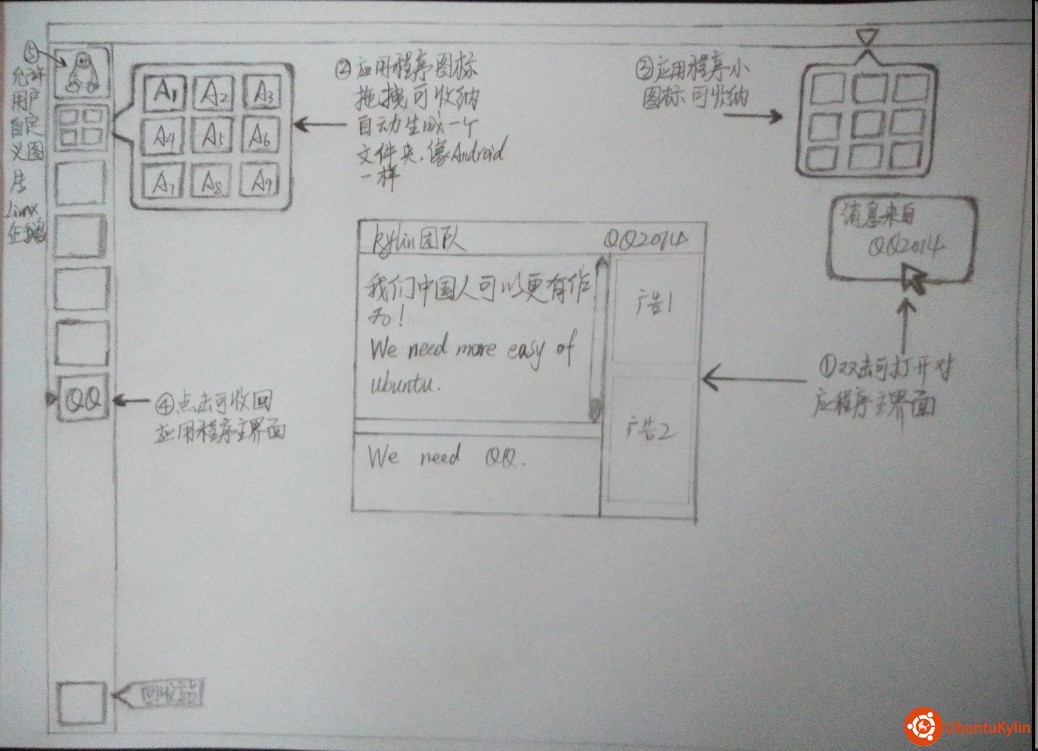 ⑤
允许
用户
自定
义图
片
Linux
企鹅
A1 A2 A3
A4 A5 A6
A7 A8 A9
②应用程序图标
拖拽可收纳
自动生成一个
文件夹,像Android
一样
③应用程序小
图标可收纳
消息来自
QQ2014
kylin团队 QQ2014
我们中国人可以更有作
为!
We need more easy of
ubuntu.
We need QQ.
广告1
广告2
①双击可打开对
应程序主界面
QQ
④点击可收回
应用程序主界面
回收站
UbuntuKylin